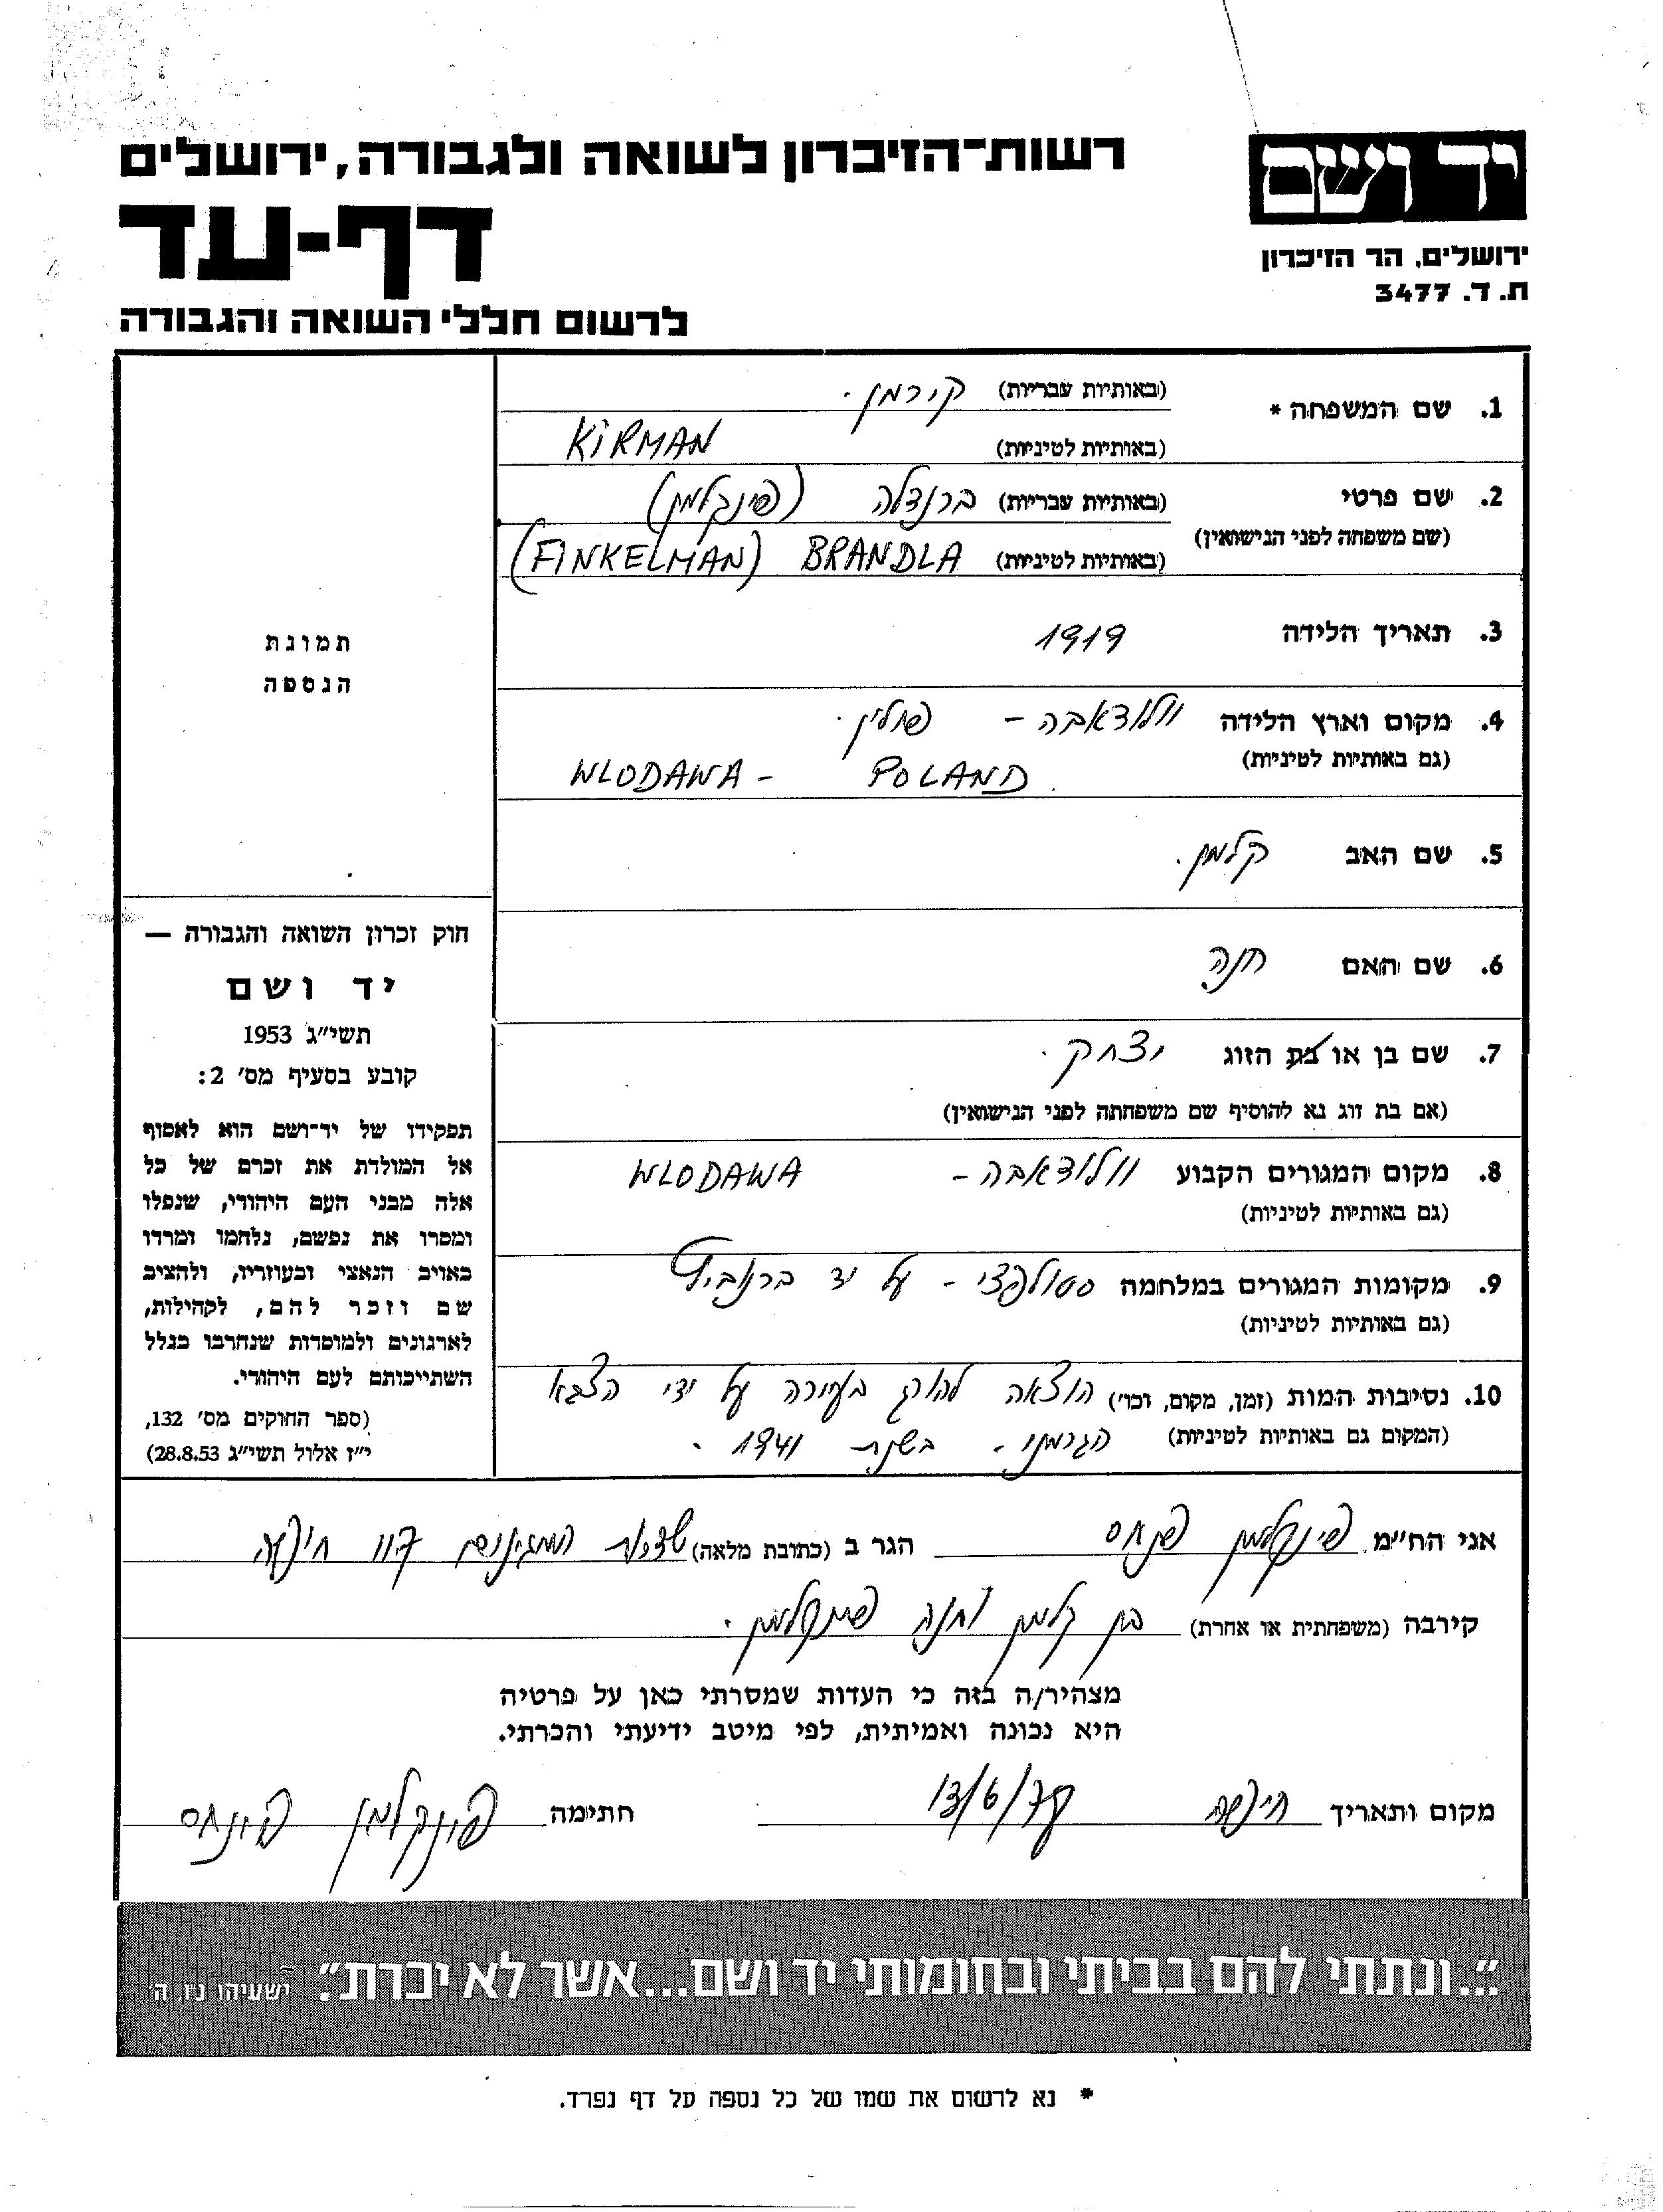 רשות־הזיכרון לשואה ולגבורה, ירושלים
דף-עד
לרשום חללי השואה והגבורה
יד ושם
ירושלים, הר הזיכרון
ת. ד. 3477
1. שם המשפחה * (באותיות עבריות) קירמן.
(באותיות לטיניות) KIRMAN
2. שם פרטי (באותיות עבריות) ברנדלה (פינקלמן)
(שם משפחה לפני הנישואין) (באותיות לטיניות) BRANDLA (FINKELMAN)
3. תאריך הלידה 1919
4. מקום וארץ הלידה וולודאבה - פולין.
(גם באותיות לטיניות) WLODAWA - POLAND.
5. שם האב קלמן.
6. שם האם חנה
7. שם בן או בת הזוג יצחק.
(אם בת זוג נא להוסיף שם משפחתה לפני הנישואין)
8. מקום המגורים הקבוע וולודאבה - WLODAWA
(גם באותיות לטיניות)
9. מקומות המגורים במלחמה סטולפצי - על יד ברנוביץ
(גם באותיות לטיניות)
10. נסיבות המות (זמן, מקום, וכו') הוצאה להורג בעיירה על ידי הצבא
(המקום גם באותיות לטיניות) הגרמני. בשנת 1941.
תמונת
הנספה
חוק זכרון השואה והגבורה —
יד ושם
תשי״ג 1953
קובע בסעיף מס' 2:
תפקידו של יד־ושם הוא לאסוף
אל המולדת את זכרם של כל
אלה מבני העם היהודי, שנפלו
ומסרו את נפשם, נלחמו ומרדו
באויב הנאצי ובעוזריו, ולהציב
שם וזכר להם, לקהילות,
לארגונים ולמוסדות שנחרבו בגלל
השתייכותם לעם היהודי.
(ספר החוקים מס' 132,
י״ז אלול תשי״ג 28.8.53)
אני הח״מ פינקלמן פנחס הגר ב (כתובת מלאה) חיפה
קירבה (משפחתית או אחרת) בן קלמן וחנה פינקלמן.
מצהיר/ה בזה כי העדות שמסרתי כאן על פרטיה
היא נכונה ואמיתית, לפי מיטב ידיעתי והכרתי.
מקום ותאריך חיפה 13/6/ חתימה פינקלמן פינחס
"...ונתתי להם בביתי ובחומותי יד ושם...אשר לא יכרת". ישעיהו נ״ו, ה'
* נא לרשום את שמו של כל נספה על דף נפרד.